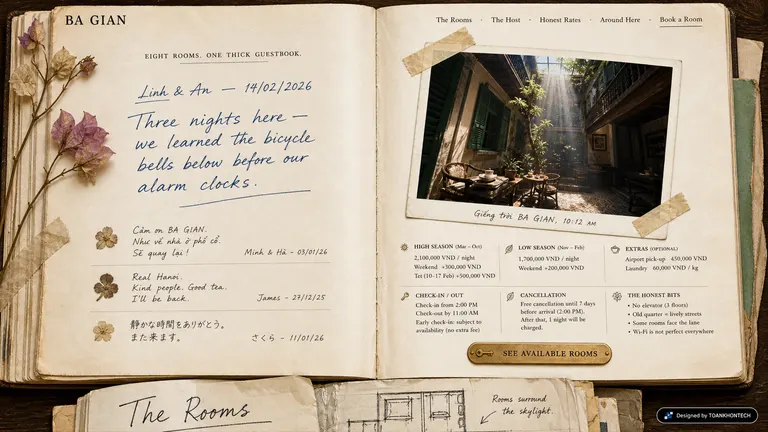 BA GIAN
The Rooms · The Host · Honest Rates · Around Here · Book a Room
EIGHT ROOMS. ONE THICK GUESTBOOK.
Linh & An — 14/02/2026
Three nights here —
we learned the bicycle
bells below before our
alarm clocks.
Cảm ơn BA GIAN.
Như về nhà ở phố cổ.
Sẽ quay lại!
Minh & Hà - 03/01/26
Real Hanoi.
Kind people. Good tea.
I'll be back.
James - 27/12/25
静かな時間をありがとう。
また来ます。
さくら - 11/01/26
Giếng trời BA GIAN, 10:12 AM
HIGH SEASON (Mar – Oct)
2,100,000 VND / night
Weekend +300,000 VND
Tet (10–17 Feb) +500,000 VND
LOW SEASON (Nov – Feb)
1,700,000 VND / night
Weekend +200,000 VND
EXTRAS (OPTIONAL)
Airport pick-up 450,000 VND
Laundry 60,000 VND / kg
CHECK-IN / OUT
Check-in from 2:00 PM
Check-out by 11:00 AM
Early check-in: subject to
availability (no extra fee)
CANCELLATION
Free cancellation until 7 days
before arrival (2:00 PM).
After that, 1 night will be
charged.
THE HONEST BITS
• No elevator (3 floors)
• Old quarter = lively streets
• Some rooms face the lane
• Wi-Fi is not perfect everywhere
SEE AVAILABLE ROOMS
The Rooms
Rooms surround
the skylight.
Designed by TOANKHONTECH